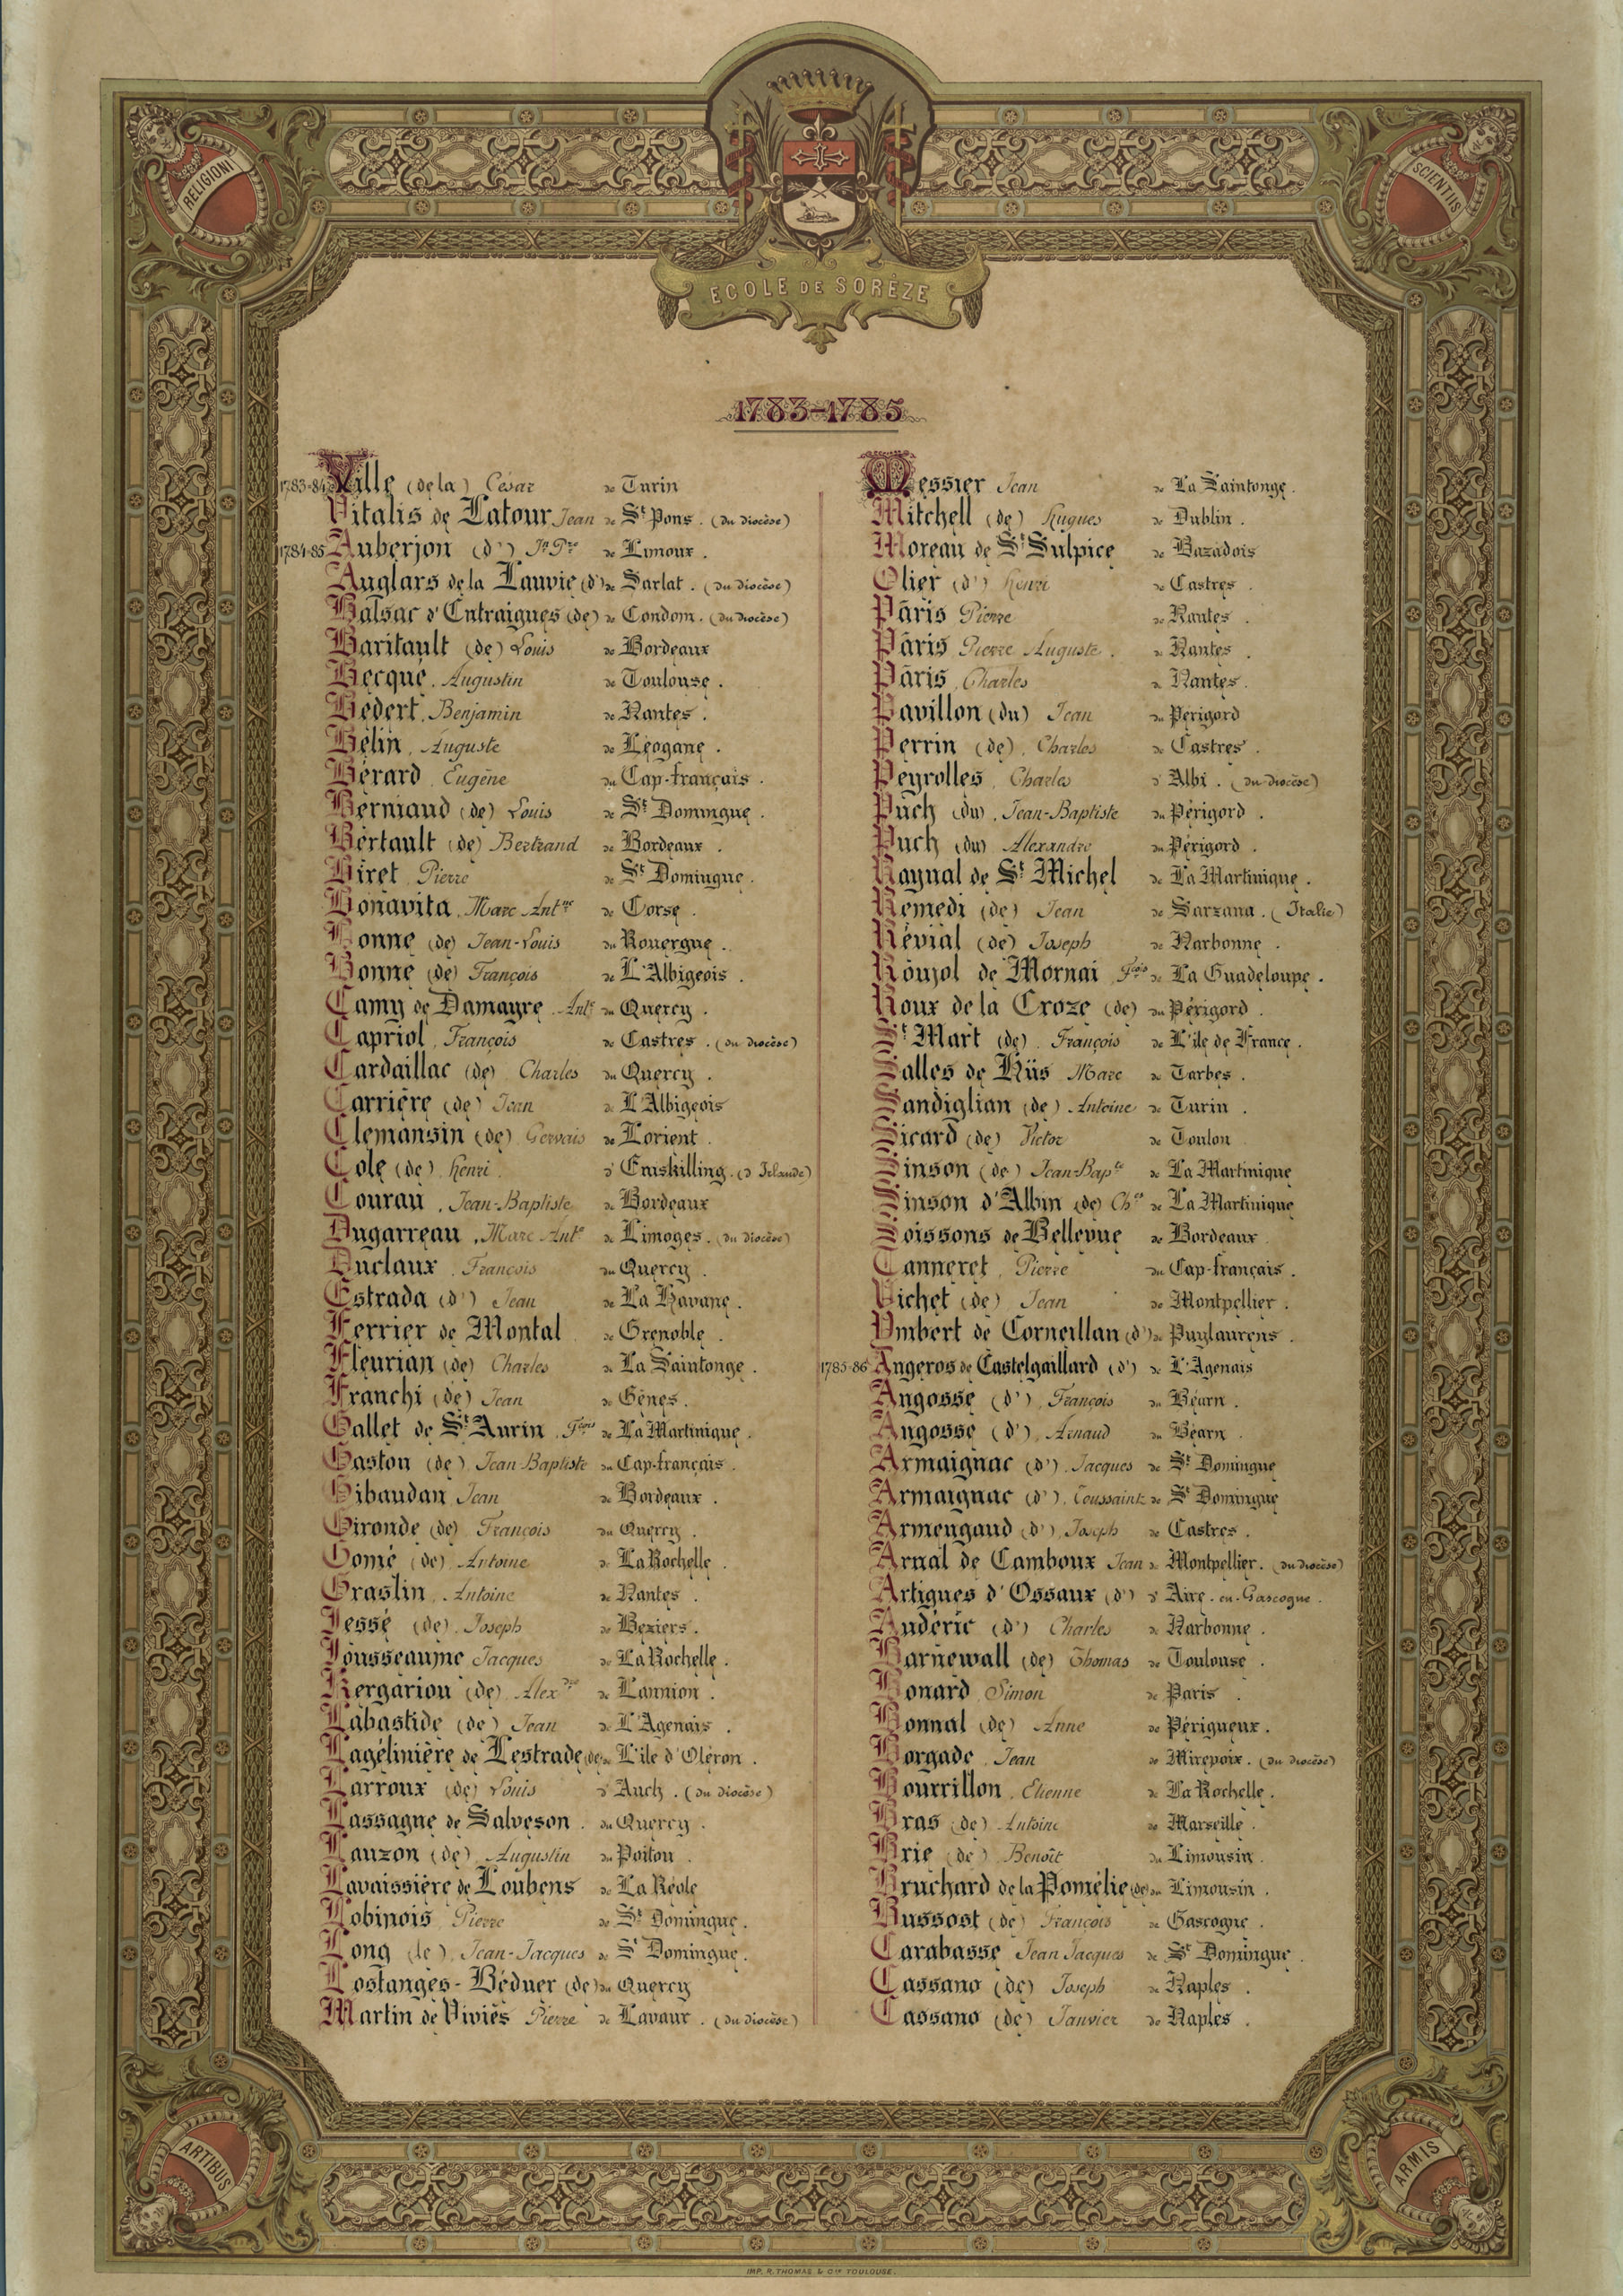 RELIGIONI
SCIENTIIS
ECOLE DE SORÈZE
1783-1785
1783-84 Ville (de la) César de Turin
Vitalis de Latour Jean de St Pons. (du diocèse)
1784-85 Auberjon (d') Jn Pre de Limoux.
Auglars de la Lauvie (d') de Sarlat. (du diocèse)
Balsac d'Entraigues (de) de Condom. (du diocèse)
Baritault (de) Louis de Bordeaux
Becqué, Augustin de Toulouse.
Bédert, Benjamin de Nantes.
Bélin, Auguste de Léogane.
Bérard, Eugène du Cap-français.
Berniaud (de) Louis de St Domingue.
Bertault (de) Bertrand de Bordeaux.
Biret, Pierre de St Domingue.
Bonavita, Marc Antne de Corse.
Bonne (de) Jean-Louis du Rouergue.
Bonne (de) François de L'Albigeois.
Camy de Damayre, Ante du Quercy.
Capriol, François de Castres. (du diocèse)
Cardaillac (de) Charles du Quercy.
Carrière (de) Jean de L'Albigeois
Clemansin (de) Gervais de Lorient.
Cole (de) Henri. d'Eniskilling. (d'Irlande)
Courau, Jean-Baptiste de Bordeaux
Dugarreau, Marc Ante de Limoges. (du diocèse)
Duclaux, François du Quercy.
Estrada (d') Jean de La Havane.
Ferrier de Montal de Grenoble.
Fleurian (de) Charles de La Saintonge.
Franchi (de) Jean de Gênes.
Gallet de St Aurin, Fçois de La Martinique.
Gaston (de) Jean-Baptiste du Cap-français.
Gibaudan Jean de Bordeaux.
Gironde (de) François du Quercy.
Gomé (de) Antoine de La Rochelle.
Graslin, Antoine de Nantes.
Jessé (de) Joseph de Beziers.
Jousseaume Jacques de La Rochelle.
Kergariou (de) Alexdre de Lannion.
Labastide (de) Jean de L'Agenais.
Lagélinière de Lestrade (de) de L'île d'Oléron.
Larroux (de) Louis d'Auch. (du diocèse)
Lassagne de Salveson. du Quercy.
Lauzon (de) Augustin du Poitou.
Lavaissière de Loubens de La Réole
Lobinois Pierre de St Domingue.
Long (le), Jean-Jacques de St Domingue.
Lostanges-Béduer (de) du Quercy
Martin de Viviés Pierre de Lavaur. (du diocèse)
Messier Jean de La Saintonge.
Mitchell (de) Hugues de Dublin.
Moreau de St Sulpice de Bazadois
Olier (d') Henri de Castres.
Pâris Pierre de Nantes.
Pâris Pierre Auguste. de Nantes.
Pâris, Charles de Nantes.
Pavillon (du) Jean du Périgord
Perrin (de), Charles de Castres.
Peyrolles, Charles d'Albi. (du diocèse)
Puch (du), Jean-Baptiste du Périgord.
Puch (du) Alexandre du Périgord.
Raynal de St Michel de La Martinique.
Remedi (de) Jean de Sarzana. (Italie)
Révial (de) Joseph de Narbonne.
Roujol de Mornai Fçois de La Guadeloupe.
Roux de la Croze (de) du Périgord.
St Mart (de). François de L'île de France.
Salles de Hiis Marc de Tarbes.
Sandiglian (de) Antoine de Turin.
Sicard (de) Victor de Toulon
Sinson (de) Jean-Bapte de La Martinique
Sinson d'Albin (de) Chles de La Martinique
Soissons de Bellevue de Bordeaux
Tanneret, Pierre du Cap-français.
Vichet (de) Jean de Montpellier.
Ymbert de Corneillan (d') de Puylaurens.
1785-86 Angeros de Castelgaillard (d') de L'Agenais
Angosse (d'), François du Béarn.
Angosse (d'), Arnaud du Béarn.
Armaignac (d'), Jacques de St Domingue
Armaignac (d'), Toussaint de St Domingue
Armengaud (d'), Joseph de Castres.
Arnal de Camboux Jean de Montpellier. (du diocèse)
Artigues d'Ossaux (d') d'Aire-en-Gascogne.
Audéric (d') Charles de Narbonne.
Barnewall (de) Thomas de Toulouse.
Bonard, Simon de Paris.
Bonnal (de) Anne de Périgueux.
Borgade, Jean de Mirepoix. (du diocèse)
Bourrillon, Etienne de La Rochelle.
Bras (de) Antoine de Marseille.
Brie (de) Benoît du Limousin.
Bruchard de la Pomélie (de) du Limousin.
Bussost (de) François de Gascogne.
Carabasse Jean Jacques de St Domingue.
Cassano (de) Joseph de Naples.
Cassano (de) Janvier de Naples.
ARTIBUS
ARMIS
IMP. R. THOMAS & Cie TOULOUSE.